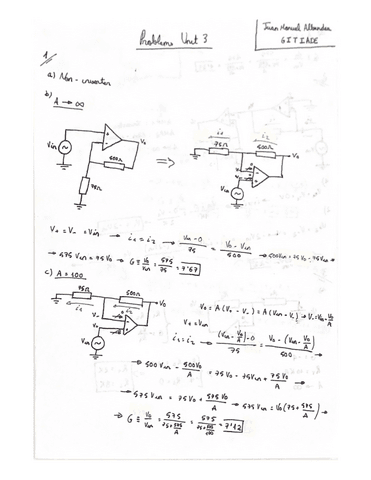 Problems Unit 3
Juan Manuel
GITIADE
1/
a) Non-inverter
b)
A → ∞
Vin
500Ω
75Ω
Vo
=>
i1
75Ω
i2
500Ω
Vo
Vin
V+ = V- = Vin → i1 = i2 → (Vin - 0)/75 = (Vo - Vin)/500 → 500Vin = 75Vo - 75Vin →
→ 575 Vin = 75 Vo → G ≡ Vo/Vin = 575/75 = 7'67
c) A = 100
75Ω
500Ω
Vo
i1
i2
V-
V+
Vin
Vo = A(V+ - V-) = A(Vin - V-) → V- = Vin - Vo/A
V+ = Vin
i1 = i2 → ((Vin - Vo/A) - 0)/75 = (Vo - (Vin - Vo/A))/500 →
→ 500 Vin - 500Vo/A = 75 Vo - 75Vin + 75 Vo/A →
→ 575 Vin = 75 Vo + 575 Vo/A → 575 Vin = Vo(75 + 575/A) →
→ G ≡ Vo/Vin = 575/(75 + 575/A) = 575/(75 + 575/100) = 7'12